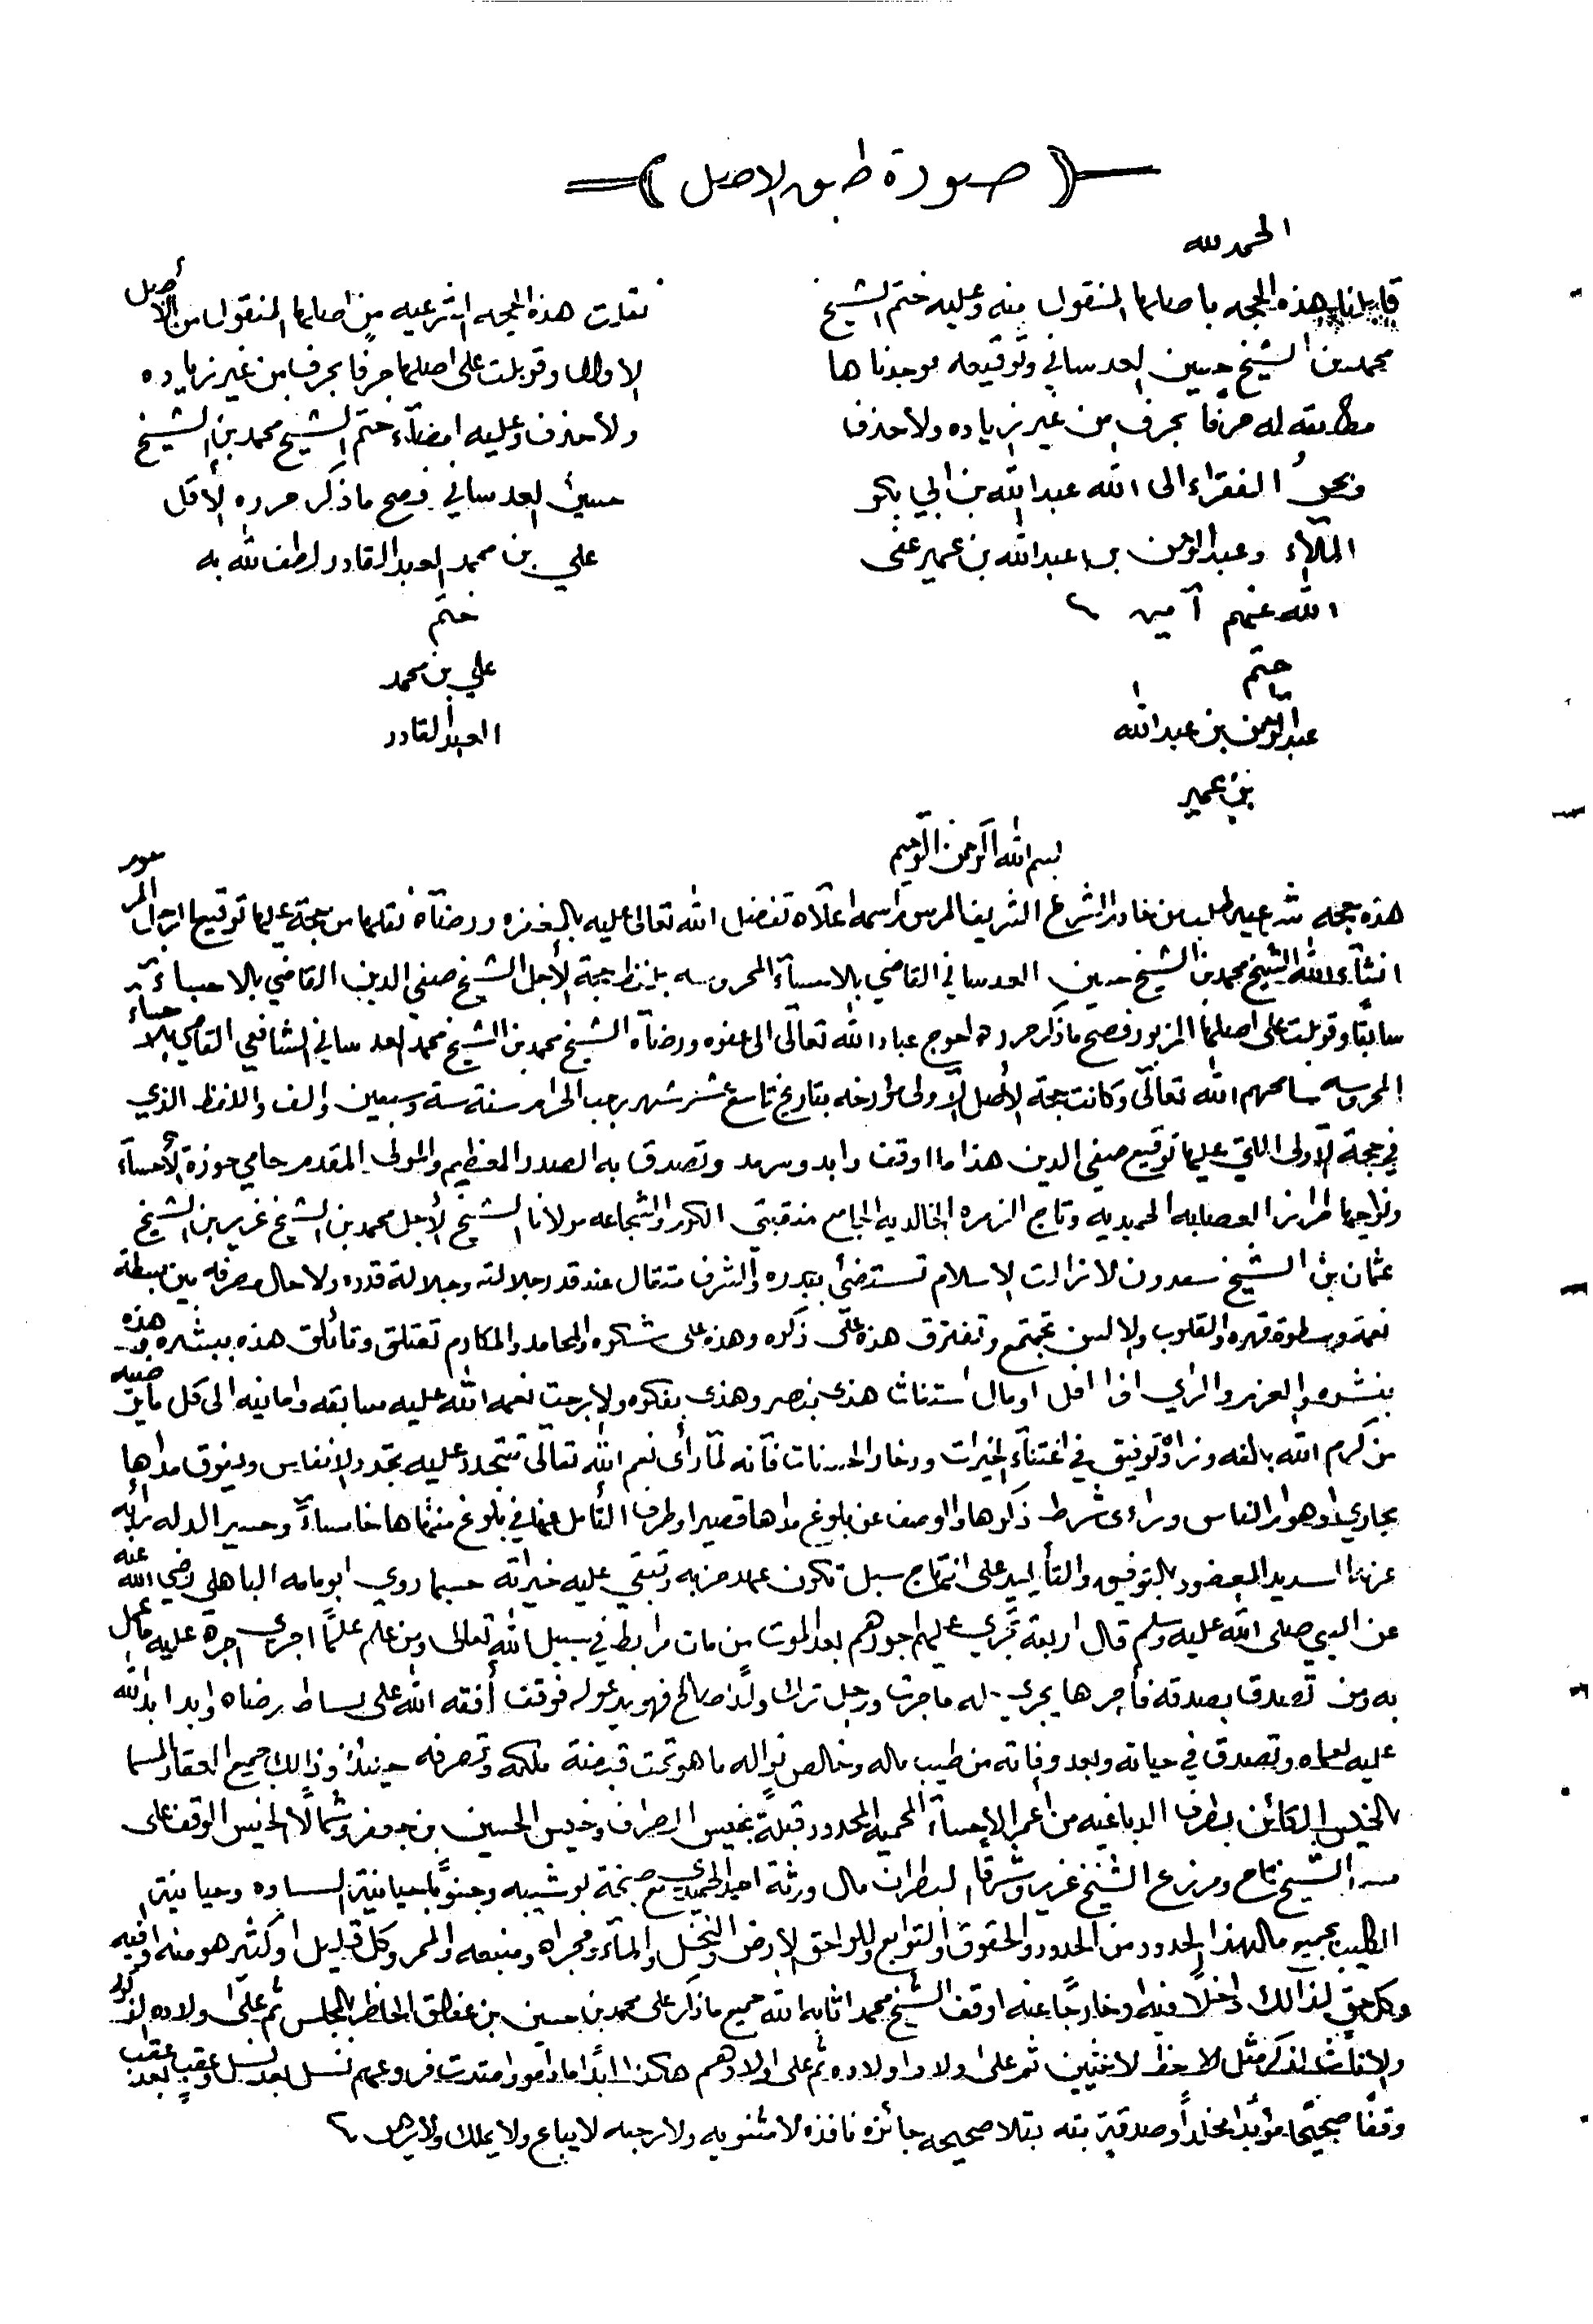 صورة طبق الاصل
الحمد لله
قابلنا هذه الحجه باصلها المنقول منه وعليه ختم الشيخ
محمد بن الشيخ حسين العدساني وتوقيعه فوجدناها
مطابقه له حرفا بحرف من غير زياده ولا حذف
ونحن الفقراء الى الله عبد الله بن ابي بكر
الملاء وعبد الرحمن بن عبد الله بن عمير عفى
الله عنهم آمين
ختم
عبد الرحمن بن عبد الله
بن عمير
نقلت هذه الحجه الشرعيه من اصلها المنقول من الأصل
الاول وقوبلت على اصلها حرفا بحرف من غير زياده
ولا حذف وعليه امضاء ختم الشيخ محمد بن الشيخ
حسين العدساني فصح ما ذكر حرره الأقل
علي بن محمد العبد القادر لطف الله به
ختم
علي بن محمد
العبد القادر
بسم الله الرحمن الرحيم
هذه حجه شرعيه طلب من خادم الشرع الشريف المرسم اسمه اعلاه تفضل الله تعالى عليه بالمغفره ورضاه نقلها من حجة عليها توقيع الرجل المرحوم
انشاء الله الشيخ محمد بن الشيخ حسين العدساني القاضي بالاحساء المحروسه بلفظ حجة الأجل الشيخ صفي الدين القاضي بالاحساء
سابقا وقوبلت على اصلها المزبور فصح ما ذكر حرره احوج عباد الله تعالى الى عفوه ورضاه الشيخ محمد بن الشيخ محمد العدساني الشافعي القاضي بالاحساء
المحروسه سامحهم الله تعالى وكانت حجة الأصل الاولى مؤرخه بتاريخ تاسع عشر شهر رجب الحرام سنة ستة وسبعين والف واللفظ الذي
في حجة الاولى اللتي عليها توقيع صفي الدين هذا ما اوقف وابد وسرمد وتصدق به الصدر المعظيم والمولى المقدم حامي حوزة الأحساء
ونواحيها طراز العصابه الحميديه وتاج الزمره الخالديه الجامع منقبتي الكرم والشجاعه مولانا الشيخ الأجل محمد بن الشيخ غرير بن الشيخ
عثمان بن الشيخ سعدون لا زالت الاسلام تستضئ ببدره والشرف متقال عند قدر جلالته وجلالة قدره ولا حال صرفه بين بسطة
نعمه وسطوة قهره والقلوب والالسن تجتمع وتفترق هذه على ذكره وهذه على شكره والمحامد والمكارم تعتلق وتأتلق هذه ببشره وهذه
بنشره والعزيز والراي اذا افل او مال استنات هذى بنصر وهذى بفكره ولا برحت نعمه الله عليه سابقه وامانيه الى كل ما يرضيه
من كرم الله بالغه وزاده توفيق في اغتناء الخيرات ودخار الحسنات فأنه لما رأى نعم الله تعالى تتجدد عليه بتجدد الانفاس ويفوق مداها
بجاري اوهوام الناس وراءى شرط ذكرها والوصف عن بلوغ مداها قصيرا وطرف التأمل عنها في بلوغ منتهاها خاسئاً وحسير الدله رأيه
عزمنا السديد المعضود بالتوفيق والتأييد على انتهاج سبل تكون عهد مزيه وتبقي عليه خيراته حسبما روي ابو مامه الباهلي رضي الله عنه
عن النبي صلى الله عليه وسلم قال اربعة تجري عليهم اجورهم بعد الموت من مات مرابط في سبيل الله تعالى ومن علم علمًا اجرى اجره عليه ما عمل
به ومن تصدق بصدقه فأجرها يجري له ما جرت ورجل ترك ولدًا صالح فهو يدعو له فوقف أفقه الله على بساط رضاه وابد ابد الله
عليه نعماه وتصدق في حياته وبعد وفاته من طيب ماله وخالص نواله ما هو تحت قبضة ملكه وتصرفه حينئذ وذالك جميع العقار المسما
بالخيس الكائن بطرف الرباعيه من أعمر الأحساء المحميه المحدود قبلةً بخيس الصراف وخيس الحسين بن جعفر وشمالًا الخيس الوقف على
الشيخ ناصر ومزرع الشيخ غرير وشرقًا البطران مال ورثة احمد الحميدي مع صبخة بو شبيبه وجنوبًا بحيانية الساده وحيانية
الكليب بجميع مالهذا المحدود من الحدود والحقوق والتوابع واللواحق الارض والنخل والماء ومجراه ومنبعه والممر وكل قليل او كثير هو منه او فيه
وكل حق لذالك داخلًا فيه او خارجًا عنه اوقف الشيخ محمد اثابه الله جميع ما ذكر على محمد بن حسين بن عفالق الحاضر بالمجلس ثم على اولاده الذكور
والاناث للذكر مثل حظ الانثيين ثم على اولاد اولاده ثم على اولادهم هاكذا ابدًا ما داموا وامتدت فروعهم نسل بعد نسل وعقب بعد عقب
وقفًا صحيحًا مؤبدًا مخلدًا وصدقةً بته بتلا صحيحه جائزه نافذه لا مثنويه ولا رجعه لا يباع ولا يملك ولا يرهن